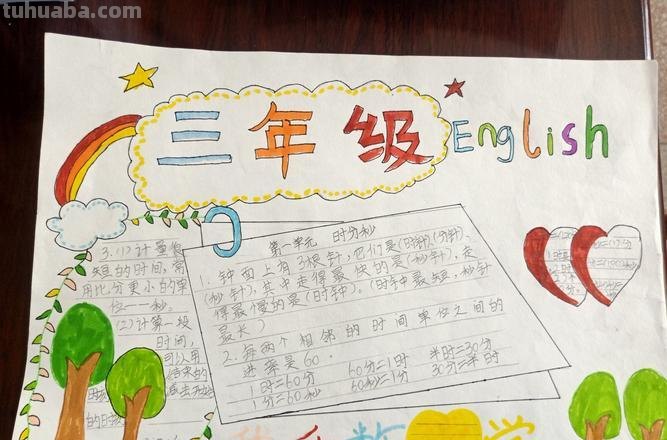 tuhuaba.com
三年级 English
第一单元 时分秒
1. 钟面上有3根针,它们是(时针)、(分针)、
(秒针),其中走得最快的是(秒针),走
得最慢的是(时针)。(时针最短,秒针
最长)
2. 每两个相邻的时间单位之间的
进率是60.
1时=60分 60分=1时 半时=30分
1分=60秒 60秒=1分 30分=半时
3.(1)计量很
短的时间,常
用比分更小的单
位——秒。
(2)计算一段
时间,
可以用
结束的